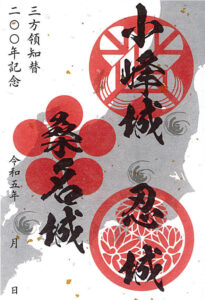 三方領知替
二〇〇年記念
小峰城
忍城
桑名城
令和五年 月 日